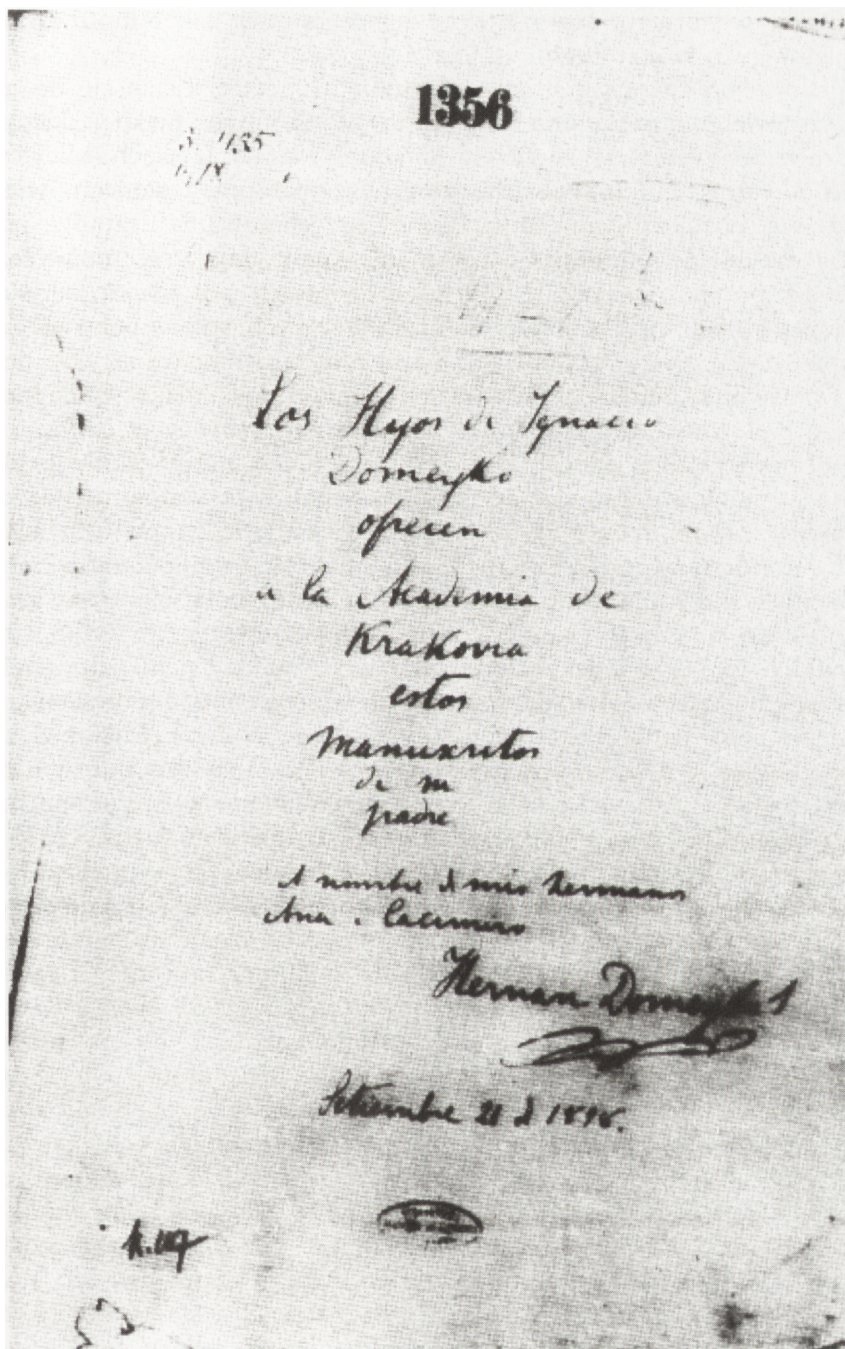 1356
Los Hijos de Ignacio
Domeyko
ofrecen
a la Academia de
Krakovia
estos
Manuscritos
de mi
padre
A nombre de mis hermanos
Ana i Casimiro
Hernan Domeyko S
Setiembre 21 d